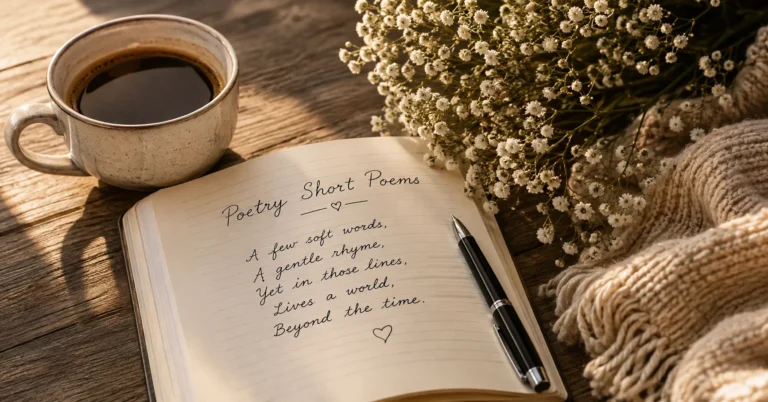 Poetry Short Poems
A few soft words,
A gentle rhyme,
Yet in those lines,
Lives a world,
Beyond the time.